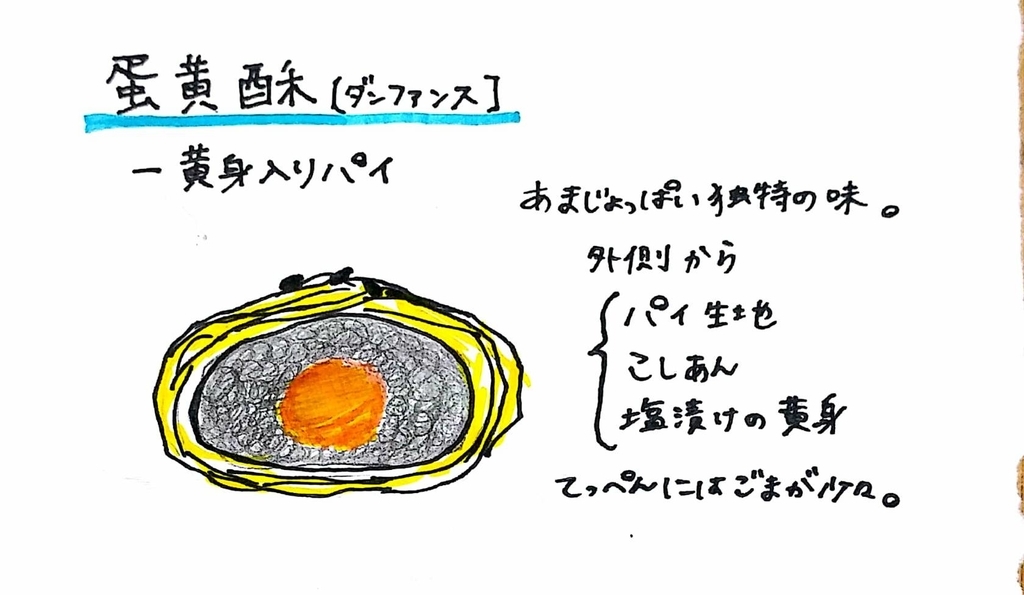 蛋黄酥[ダンファンス]
ー黄身入りパイ
あまじょっぱい独特の味。
外側から
パイ生地
こしあん
塩漬けの黄身
てっぺんにはごまが